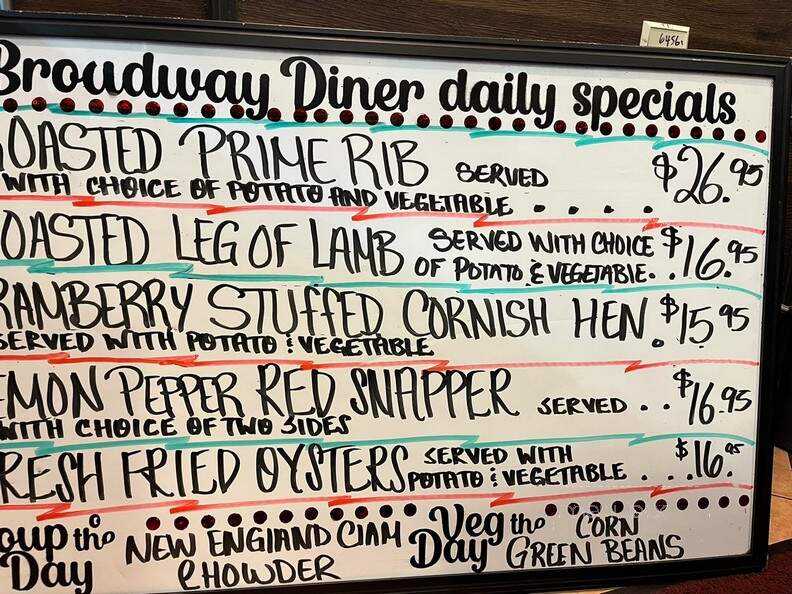 Broadway Diner daily specials
OASTED PRIME RIB SERVED $26.95
WITH CHOICE OF POTATO AND VEGETABLE . . . .
OASTED LEG OF LAMB SERVED WITH CHOICE $16.95
OF POTATO & VEGETABLE.
RANBERRY STUFFED CORNISH HEN. $15 95
SERVED WITH POTATO & VEGETABLE
EMON PEPPER RED SNAPPER SERVED . . $16.95
WITH CHOICE OF TWO SIDES
RESH FRIED OYSTERS SERVED WITH $16.95
POTATO & VEGETABLE . . .
oup of the Day NEW ENGLAND CLAM CHOWDER
Veg of the Day CORN
GREEN BEANS